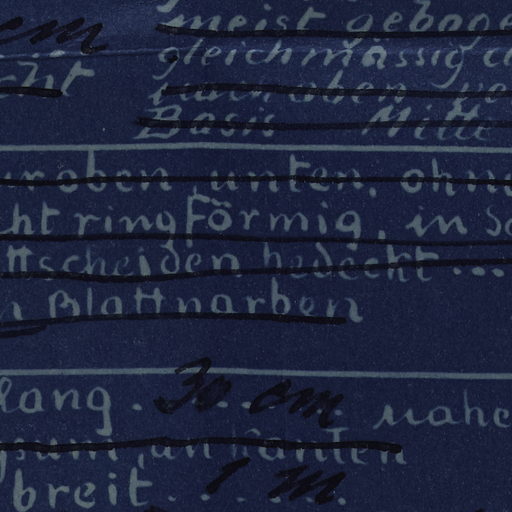 meist geboge
cm gleichmässig d
cht nach oben ve
Basis Mitte
u. oben unten, ohn
cht ringförmig, in S
ttscheiden bedeckt...
n Blattnarben
lang . 30 cm. nahe
an Kanten
breit . . 1 m.